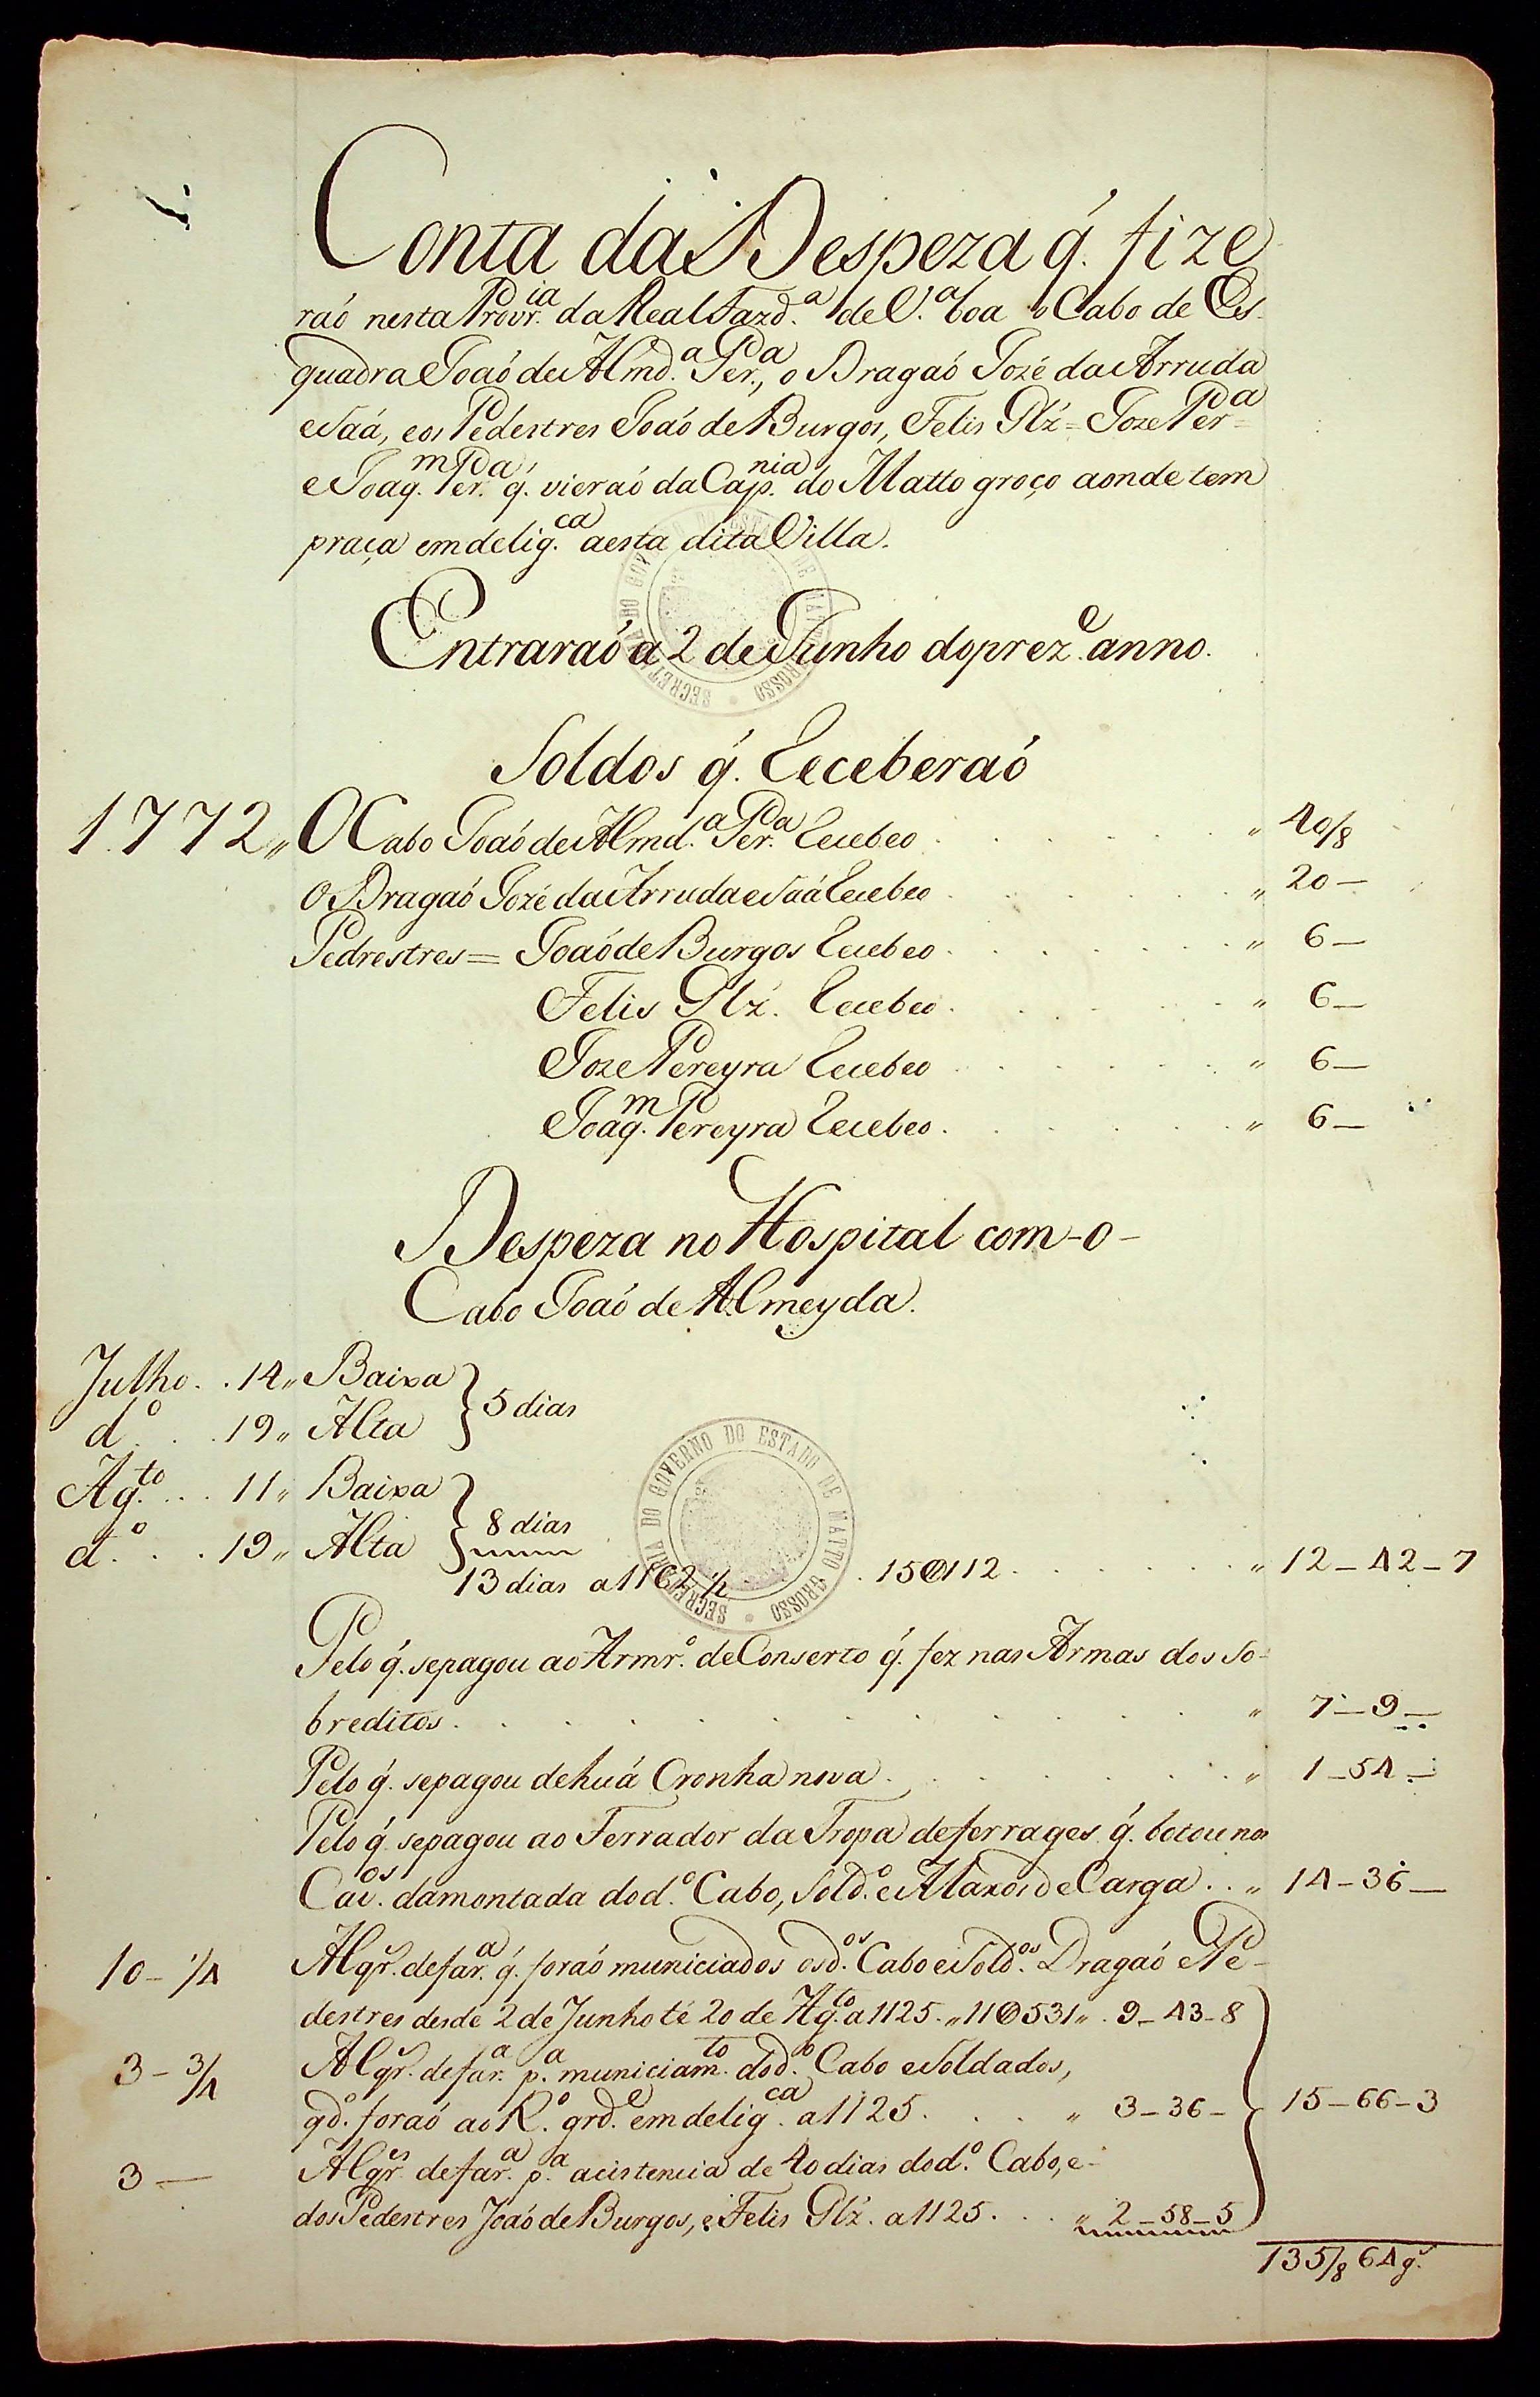 Conta da Despeza q. fize
raó nesta Provr.ia da Real Fazd.a de V.a boa o Cabo de Es-
quadra Joaó de Almd.a Per.a, o Dragaó Jozé da Arruda
e Saá, e os Pédestres Joaó de Burgos, Felis Glz = Joze Per.a =
e Joaq.m Per.a q. vieraó da Cap.nia do Matto groço aonde tem
praça em delig.ca a esta dita Villa.
Entraraó a 2 de Junho do prez.e anno.
Soldos q. Receberaó
1772 " O Cabo Joaó de Almd.a Per.a Recebeo . . . . . " 40/8
O Dragaó Jozé da Arruda e Saá Recebeo . . . . . " 20 —
Pedrestres = Joaó de Burgos Recebeo . . . . . " 6 —
Felis Glz. Recebeo . . . . . " 6 —
Joze Pereyra Recebeo . . . . . " 6 —
Joaq.m Pereyra Recebeo . . . . . " 6 —
Despeza no Hospital com - o -
Cabo Joaó de Almeyda.
Julho . . 14 " Baixa
d.o . . . 19 " Alta } 5 dias
Ag.to . . . 11 " Baixa
d.o . . . 19 " Alta } 8 dias
13 dias a 1162 1/2 . 15@112 . . . . . " 12 — 42 — 7
Pelo q. se pagou ao Armr.o de Conserto q. fez nas Armas dos So-
breditos . . . . . " 7 — 9 —
Pelo q. se pagou de huá Cronha nova . . . . . " 1 — 54 —
Pelo q. se pagou ao Ferrador da Tropa de ferrages q. botou nos
Cav.os da montada do d.o Cabo, Sold.o e Maxos de Carga . . " 14 — 36 —
10 — 1/4 Alqr.s de far.a q. foraó municiados os d.os Cabo e Sold.os Dragaó e Pe-
destres desde 2 de Junho té 20 de Ag.to a 1125 . " 11@531 " . 9 — 43 — 8
3 — 3/4 Alqr.s de far.a p.a municiam.to do d.o Cabo e Soldados,
qd.o foraó ao R.o grd.e em delig.ca a 1125 . . . . " 3 — 36 — } 15 — 66 — 3
3 — Alqr.es de far.a p.a acistencia de 40 dias do d.o Cabo, e -
dos Pedestres Joaó de Burgos, e Felis Glz. a 1125 . . . " 2 — 58 — 5
135/8 64 g.s
SECRETARIA DO GOVERNO DO ESTADO DE MATTO GROSSO
SECRETARIA DO GOVERNO DO ESTADO DE MATTO GROSSO